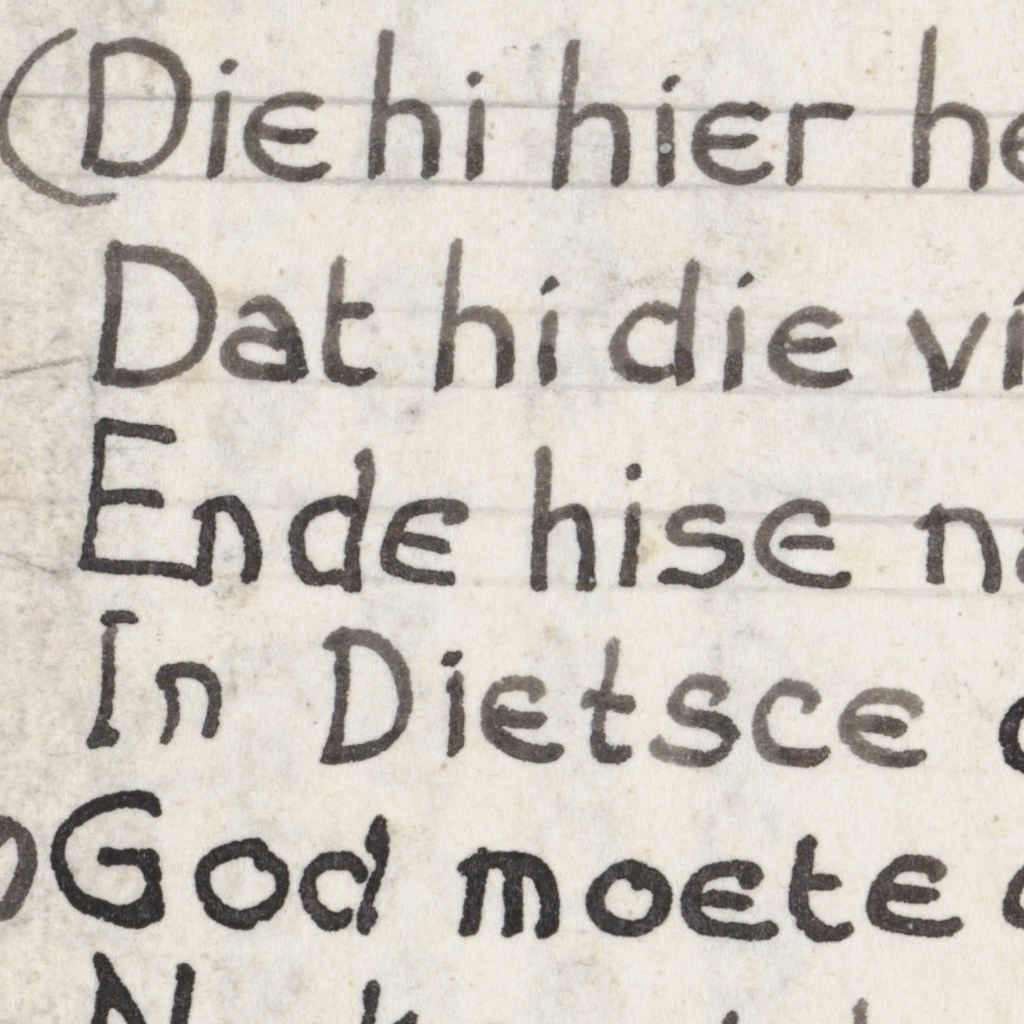 (Die hi hier he
Dat hi die vi
Ende hise na
In Dietsce
God moete